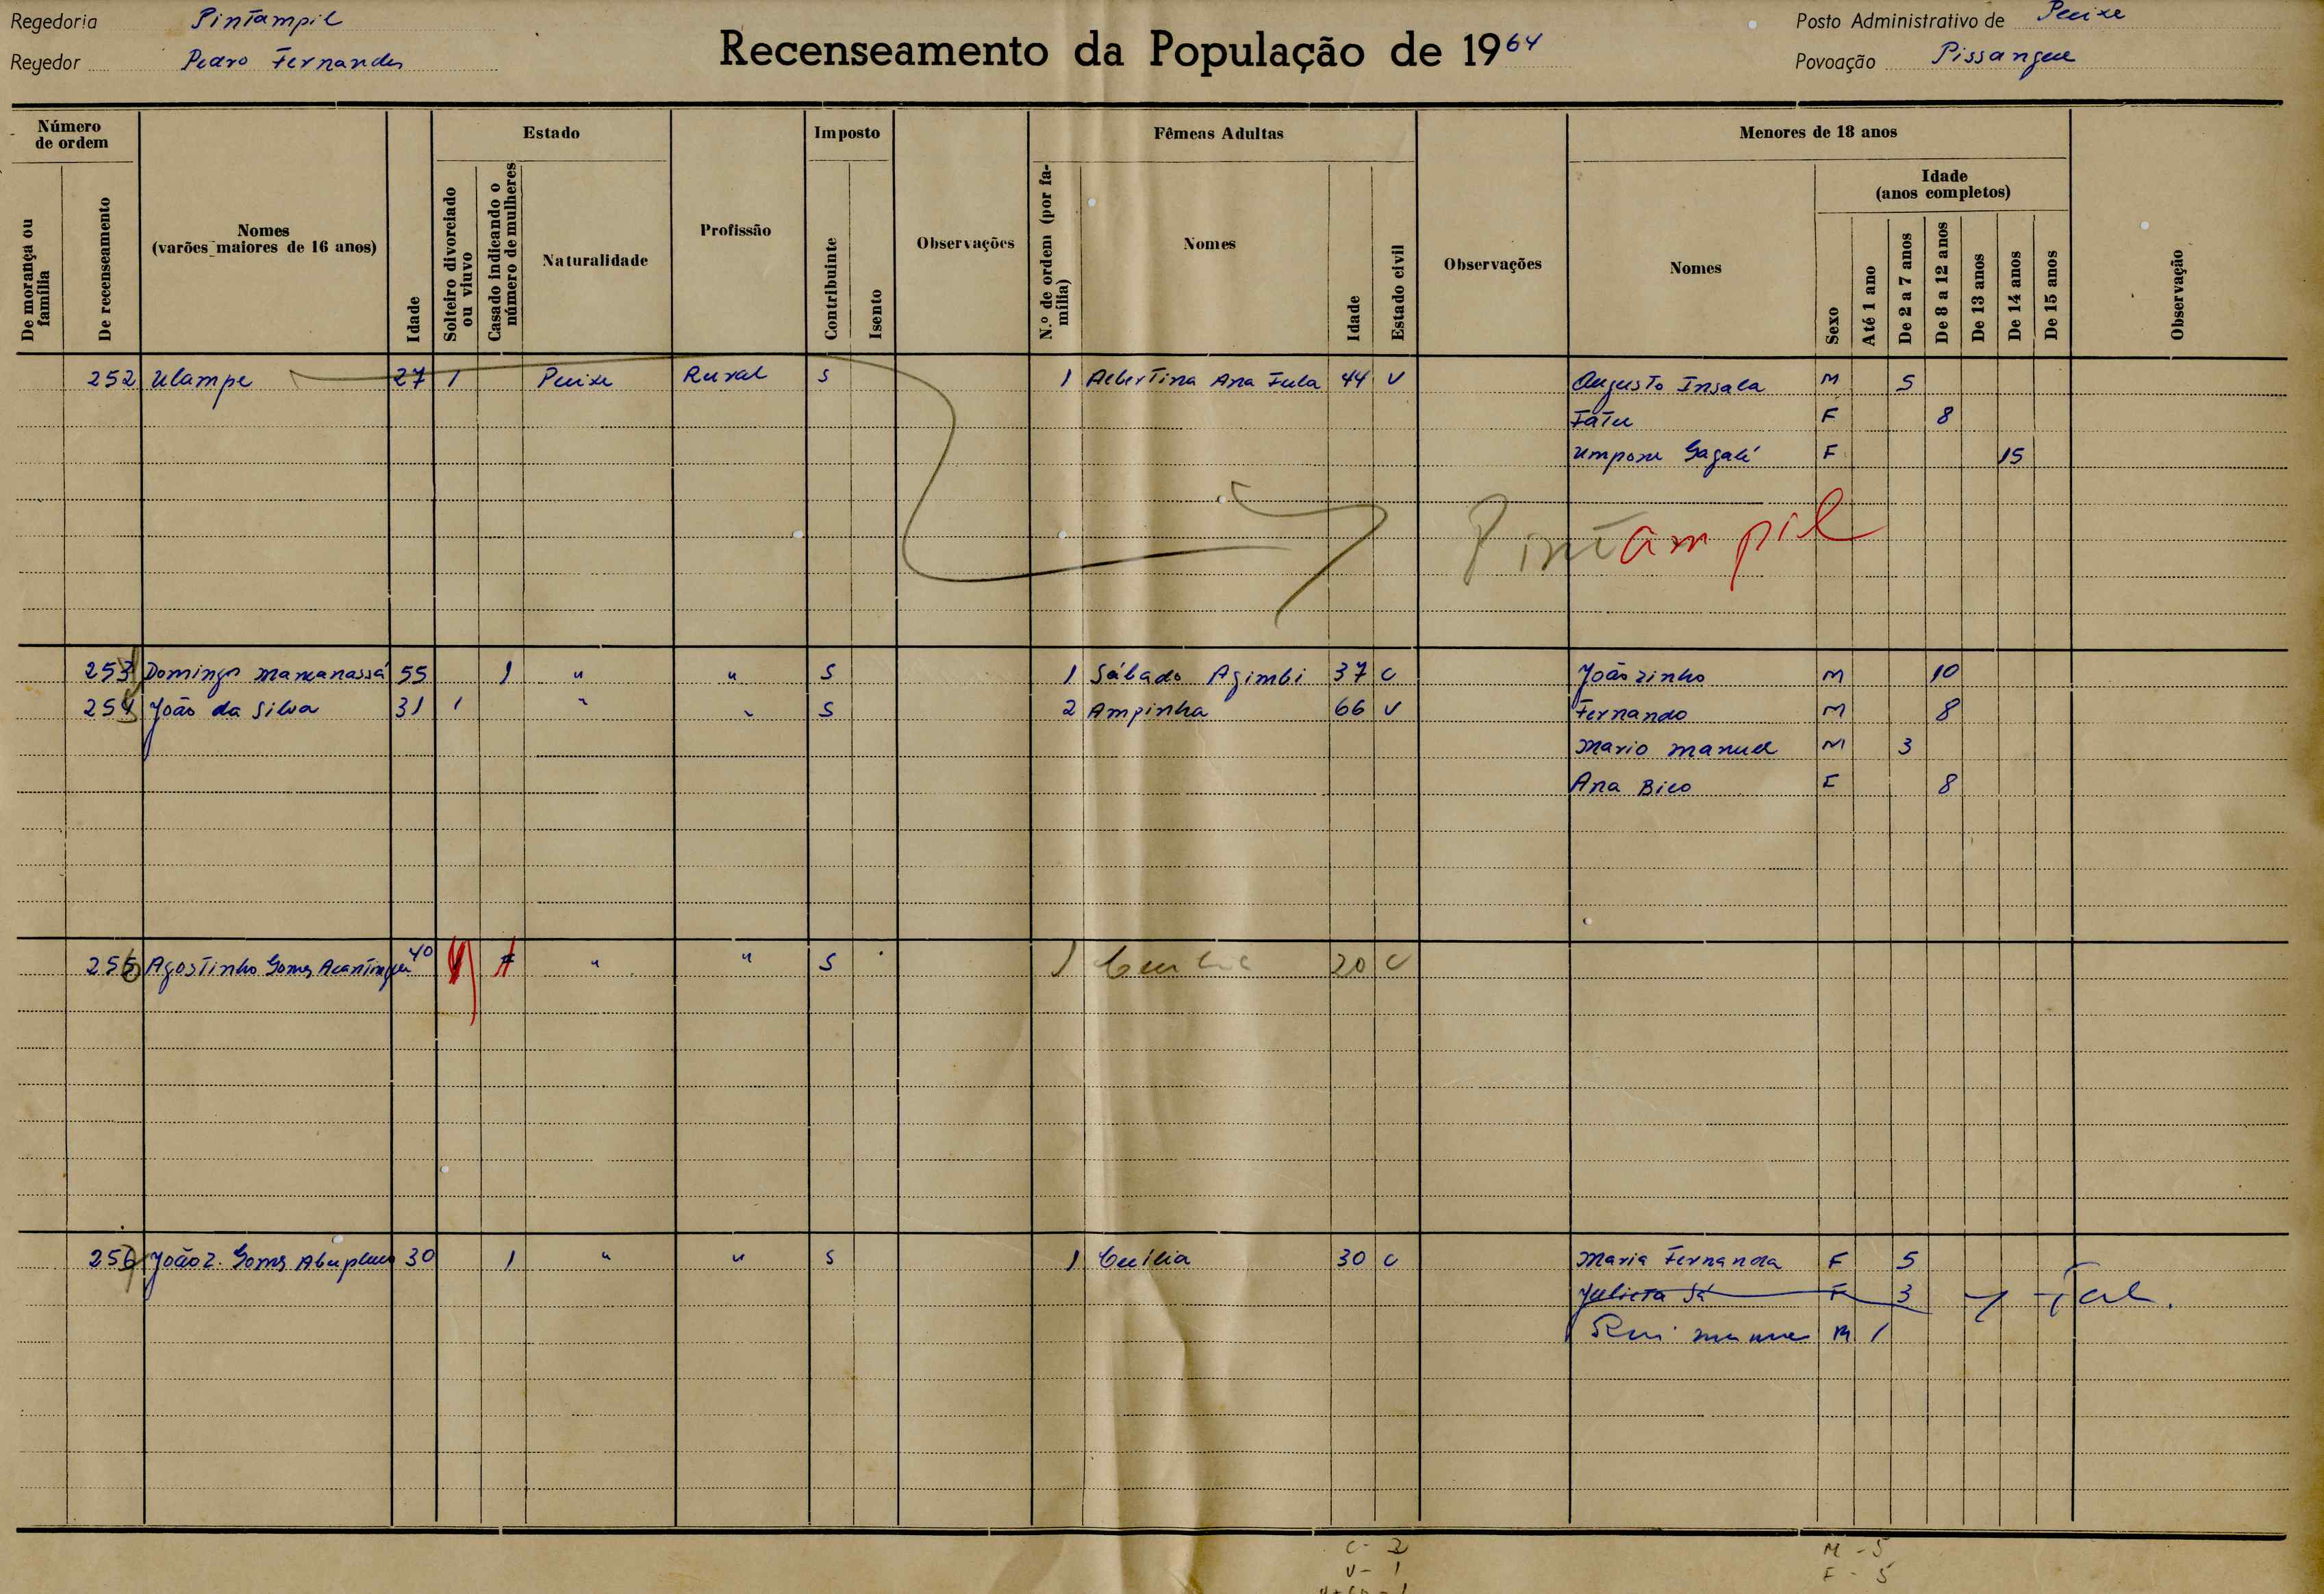 Regedoria Pintampil
Regedor Pedro Fernandes
Recenseamento da População de 1964
Posto Administrativo de Pecixe
Povoação Pissangue
Número de ordem
De morança ou família
De recenseamento
Nomes
(varões maiores de 16 anos)
Idade
Estado
Solteiro divorciado ou viuvo
Casado indicando o número de mulheres
Naturalidade
Profissão
Imposto
Contribuinte
Isento
Observações
Fêmeas Adultas
N.º de ordem (por família)
Nomes
Idade
Estado civil
Observações
Menores de 18 anos
Nomes
Idade
(anos completos)
Sexo
Até 1 ano
De 2 a 7 anos
De 8 a 12 anos
De 13 anos
De 14 anos
De 15 anos
Observação
252 Ulampe 27 1 Pecixe Rural S 1 Albertina Ana Fula 44 V Augusto Insala M 5
Fatu F 8
F 15
Pintampil
253 Domingos 55 1 " " S 1 Sábado Agimbi 37 C Joãozinho M 10
254 João da Silva 31 1 " " S 2 Ampinha 66 V Fernando M 8
Mario Manuel M 3
Ana Bico F 8
Agostinho Gomes 40 " " S 1 20 C
João Z. Gomes 30 1 " " S 1 Cecília 30 C Maria Fernanda F 5
Julieta Sá F 3
Rui M 1
C - 
V - 1
M - 5
F - 5